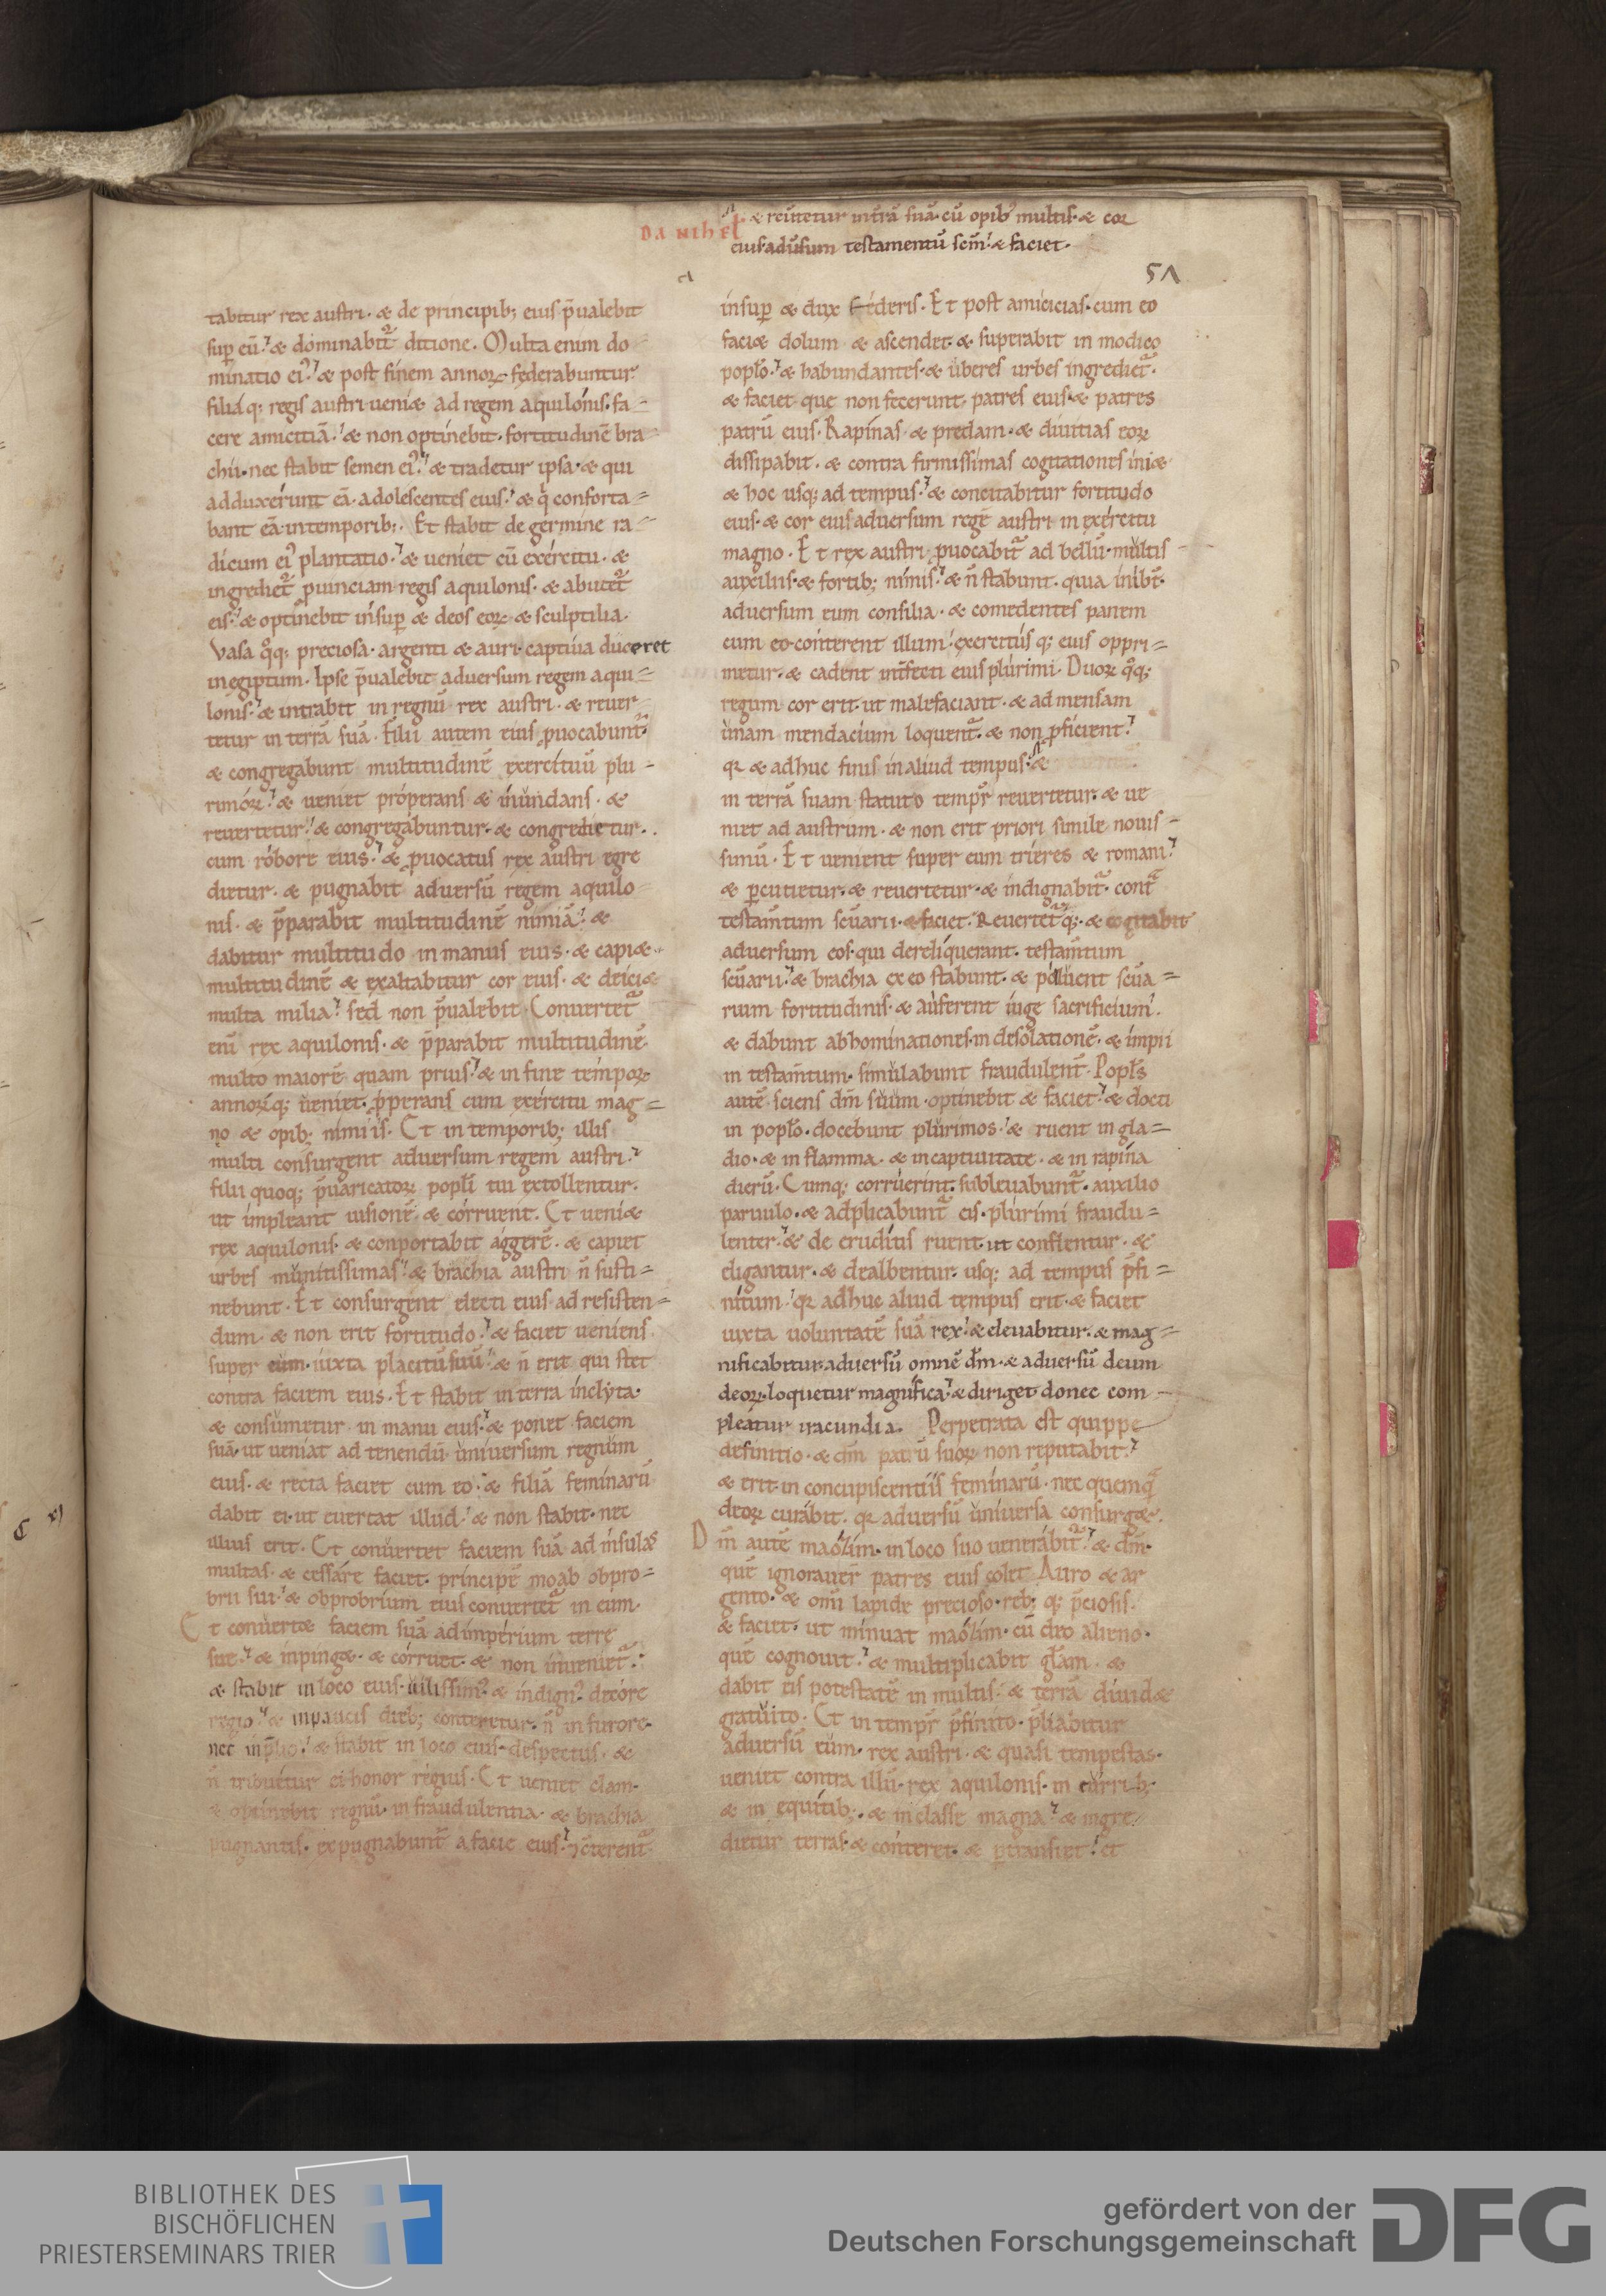 DANIHEL
& reũtetur in t̃rã suã· cũ opib multis· & cor
eius· adũsum testamentũ sc̃m· & faciet·
51
tabitur rex austri· & de principib; eius p̃ualebit
sup eũ· & dominabit̃ ditione· Multa enim do
minatio ei᾿· & post finem annoꝝ federabuntur·
filiáq; regis austri ueni& ad regem aquilonis· fa-
cere amicitiã· & non optinebit· fortitudinẽ bra-
chii· nec stabit semen ei᾿· & tradetur ipsa· & qui
adduxérunt eã· adolescentes eius· & q̃ conforta=
bant eã in temporib;· Et stabit de germine ra-
dicum ei᾿ plantatio· & ueniet cũ exércitu· &
ingrediet̃ puinciam regis aquilonis· & abutet̃
eis· & optinebit insup & deos eoꝝ & sculptilia·
Vasa q̊q; preciosa· argenti & auri· captiua duceret
in egiptum· Ipse p̃ualebit aduersum regem aqui=
lonis· & intrabit in regnũ rex austri· & reuer-
tetur in terrã suã· Filii autem eius puocabunt̃
& congregabunt multitudinẽ exercituũ plu-
rimóꝝ· & ueniet próperans & inundans· &
reuertetur· & congregabuntur· & congredietur·
cum róbore eius· & puocatus rex austri egre
dietur· & pugnabit aduersũ regem aquilo
nis· & p̃parabit multitudinẽ nimiã· &
dabitur multitudo in manus eius· & capi&·
multitudinẽ & exaltabitur cor eius· & deici&
multa milia· sed non p̃ualebit· Conuertet̃
enĩ rex aquilonis· & p̃parabit multitudinẽ
multo maiorẽ quam prius· & in fine tempoꝝ
annoꝝq; ueniet· pperans cum exércitu mag=
no & opib; nimiis· Et in temporib; illis
multi consurgent aduersum regem austri·
filii quoq; p̃uaricatoꝝ popli tui extollentur·
ut impleant uisionẽ & córruent· Et ueni&
rex aquilonis· & conportabit ággerẽ· & capiet
urbes munitissimas· & brachia austri ñ susti=
nebunt· Et consurgent electi eius ad resisten=
dum· & non erit fortitudo· & faciet ueniens
super eum· iuxta placitũ suũ· & ñ erit qui stet
contra faciem eius· Et stabit in terra inclyta·
& consumetur in manu eius· & ponet faciem
suã· ut ueniat ad tenendũ uniuersum regnum
eius· & recta faciet cum eo· & filiã feminarũ
dabit ei· ut euertat illud· & non stabit· nec
illius erit· Et conuertet faciem suã ad insulas
multas· & cessáre faciet· principẽ moab obpro=
brii sui· & obprobrium eius conuertet̃ in eum·
Et conuert& faciem suã ad impérium terre
sue· & inping& & córruet· & non inueniet̃·
& stabit in loco eius· uilissim᾿ & indign᾿ decóre
regio· & in paucis dieb; conteretur· ñ in furore·
nec in p̃lio· & stabit in loco eius· despectus· &
ñ tribuétur ei honor regius· Et ueniet clam·
& optinebit regnũ· in fraudulentia· & brachia
pugnantis· expugnabunt̃ a facie eius· ⁊ cterent̃
insup & dux féderis· Et post amicicias· cum eo
faci& dolum & ascendet· & superabit in modico
poplo· & habundantes· & úberes urbes ingrediet̃·
& faciet que non fecerunt patres eius· & patres
patrũ eius· Rapínas & predam· & diuitias eoꝝ
dissipabit· & contra firmissimas cogitationes ini&
& hoc usq; ad tempus· & concitabitur fortitudo
eius· & cor eius aduersum regẽ austri in exércitu
magno· Et rex austri puocabit̃ ad bellũ· multis
auxiliis· & fortib; nimis· & ñ stabunt· quia inibt̃
aduersum eum consilia· & comedentes panem
cum eo· cónterent illum· exercitúsq; eius oppri=
metur· & cadent int̃fecti eius plúrimi· Duoꝝ q̊q;
regum cor erit· ut malefaciant· & ad mensam
unam mendacium loquent̃· & non pficient·
qr & adhuc finis in aliud tempus· &
in terrã suam statuto tempr̃ reuertetur· & ue
niet ad austrum· & non erit priori simile nouis-
simũ· Et uenient super eum trieres & romani·
& pcutietur· & reuertetur· & indignabit̃· cont̃
testam̃tum scũarii· & faciet· Reuertet̃q;· & cogitabit
aduersum eos· qui dereliquerant· testam̃tum
scũarii· & brachia ex eo stabunt· & polluent scũa=
rium fortitudinis· & auferent iuge sacrificium·
& dabunt abhominationes· in desolationẽ· & impii
in testam̃tum· simulabunt fraudulent̃· Popls̃
autẽ· sciens dm̃ suum· optinebit & faciet· & docti
in poplo· docebunt plúrimos· & ruent in gla=
dio· & in flamma· & in captiuitate· & in rapina
dierũ· Cumq; corruerint· subleuabunt̃· auxilio
paruulo· & adplicabunt̃ eis· plúrimi fraudu=
lenter· & de eruditis ruent· ut conflentur· &
eligantur· & dealbentur· usq; ad tempus p̃fi=
nitum· qr adhuc aliud tempus erit· & faciet
iuxta uoluntatẽ suã rex· & eleuabitur· & mag=
nificabitur aduersũ omnẽ dm̃· & aduersũ deum
deoꝝ· loquetur magnifica· & diriget donec com-
pleatur iracundia· Perpetrata est quippe
definitio· & dm̃ patrũ suoꝝ non reputabit·
& erit in concupiscentiis feminarũ· nec quemq̃
deoꝝ curábit· qr aduersũ uniuersa consurg&·
Dm̃ autẽ maózim· in loco suo uenerábit̃· & dm̃·
quẽ ignorauer̃ patres eius colet· Auro & ar
gento· & omĩ lapide precioso· reb; q; p̃ciosis·
& faciet· ut minuat maózim· cũ deo alieno·
quẽ cognouit· & multiplicabit glam̃· &
dabit eis potestatẽ in multis· & terrã diuid&
gratuito· Et in tempr̃ p̃finito· p̃liabitur
aduersũ eum· rex austri· & quasi tempestas·
ueniet contra illũ· rex aquilonis· in cúrrib;
& in equitib;· & in classe magna· & ingre
dietur terras· & cónteret· & ptransiet· et
BIBLIOTHEK DES
BISCHÖFLICHEN
PRIESTERSEMINARS TRIER
gefördert von der
Deutschen Forschungsgemeinschaft
DFG